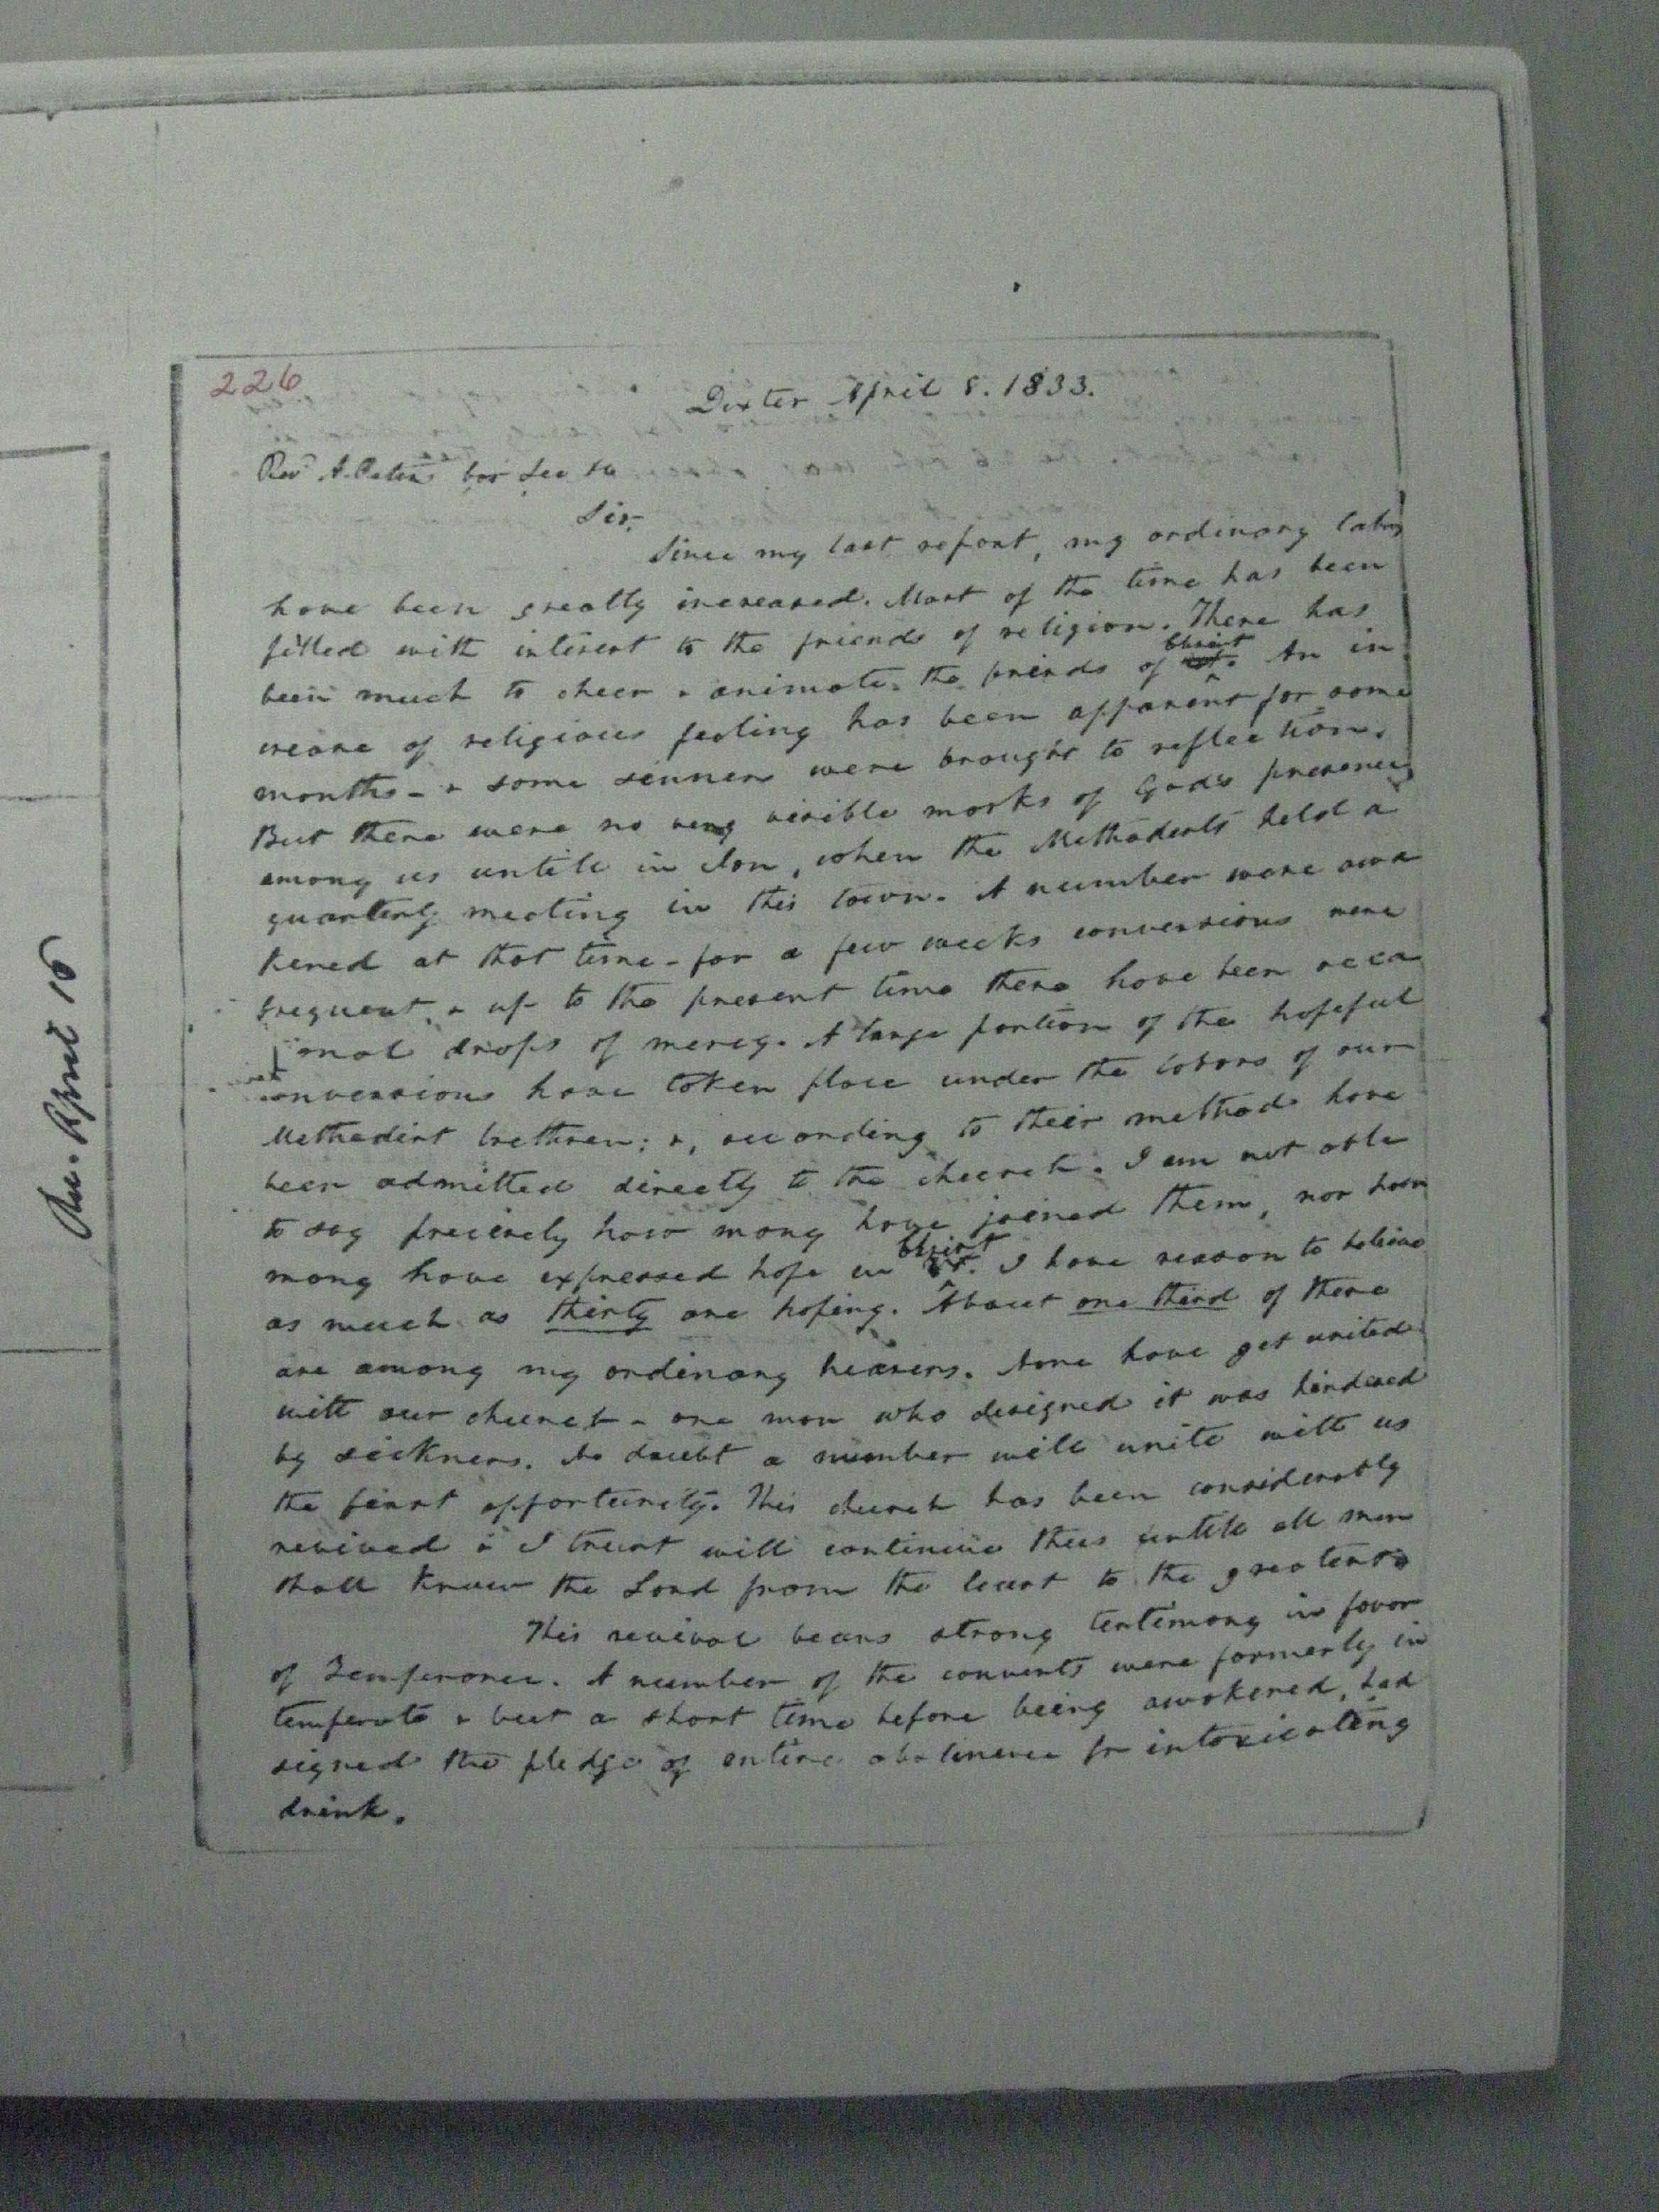 226
Dexter April 8. 1833.
Rev. A. Peters Cor Sec &c
Sir,
Since my last report, my ordinary labors
have been greatly increased. Most of the time has been
filled with interest to the friends of religion. There has
been much to cheer & animate the friends of Christ. An in
crease of religious feeling has been apparent for some
months - & some sinners were brought to reflection.
But there were no very visible marks of God's presence
among us untill in Jan, when the Methodists held a
quarterly meeting in this town. A number were awa
kened at that time - for a few weeks conversions were
frequent, & up to the present time there have been occa
sional drops of mercy. A large portion of the hopeful
conversions have taken place under the labors of our
Methodist brethren; &, according to their method have
been admitted directly to the church. I am not able
to say precisely how many have joined them, nor how
many have expressed hope in Christ. I have reason to believe
as much as thirty are hoping. About one third of these
are among my ordinary hearers. None have yet united
with our church - one man who designed it was hindered
by sickness. No doubt a number will unite with us
the first opportunity. This church has been considerably
revived & I trust will continue thus untill all men
shall know the Lord from the least to the greatest.
This revival bears strong testimony in favor
of Temperance. A number of the converts were formerly in
temperate & but a short time before being awakened, had
signed the pledge of entire abstinence fr intoxicating
drink.
An. April 16